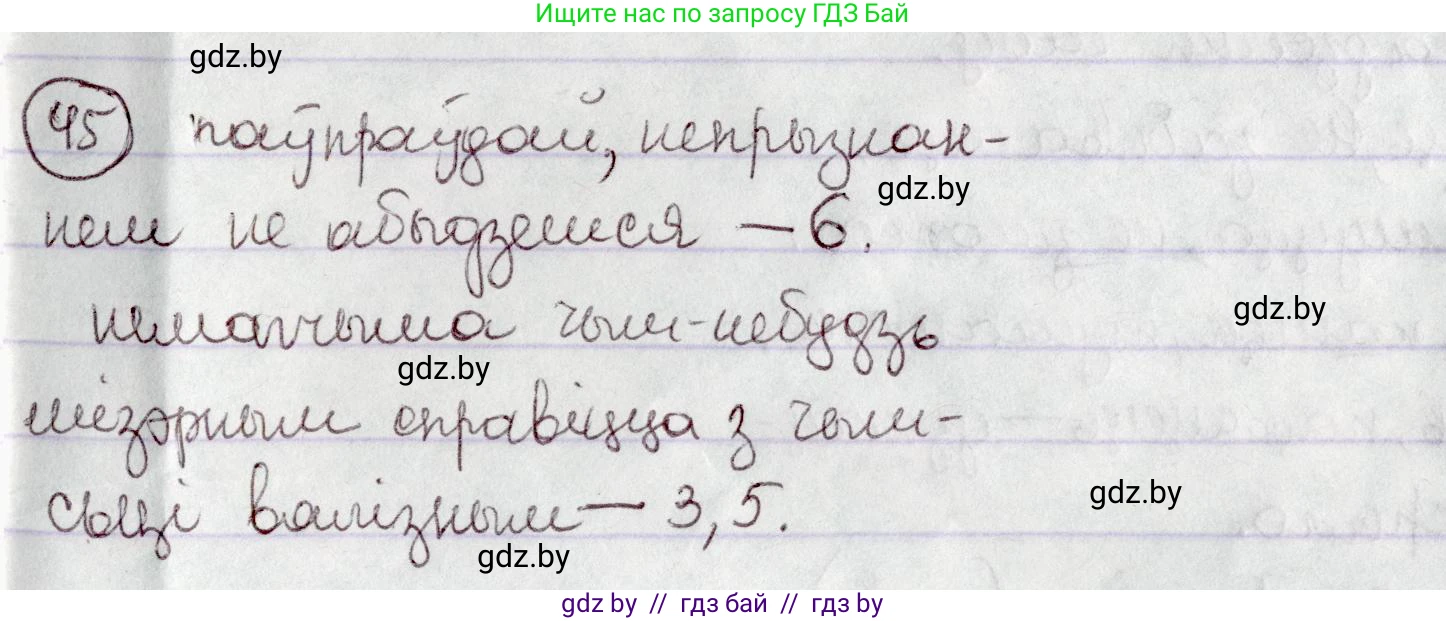 Ищите нас по запросу ГДЗ Бай
gdz.by
45 паўпраўдай, непрызнан-
gdz.by
нем не абыдзешся — 6.
немагчыма чым-небудзь
gdz.by
gdz.by
мізэрным справіцца з чым-
сьці валізным — 3, 5.
gdz.by
gdz.by
gdz by // гдз бай // гдз by